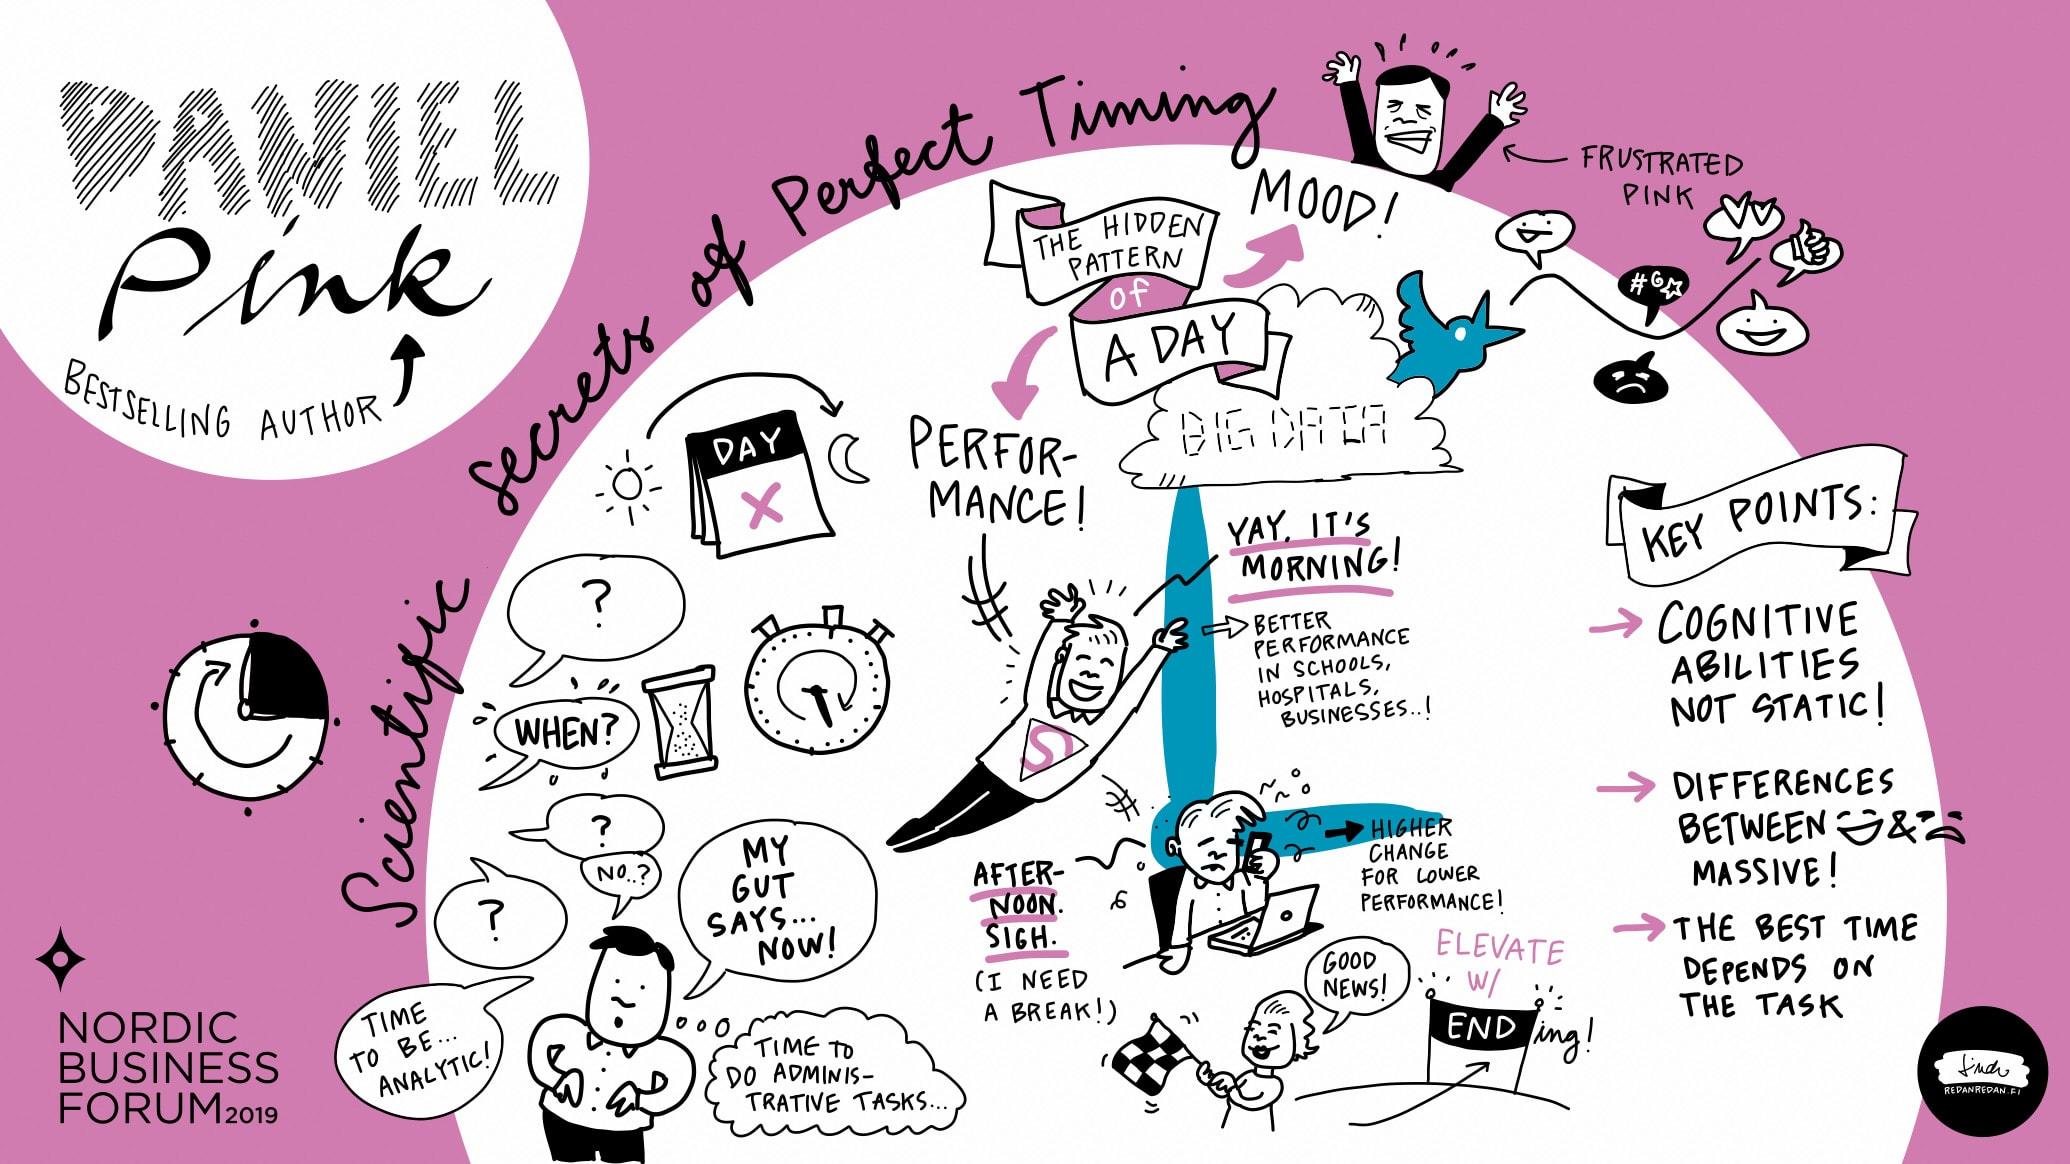 DANIEL
Pink
BESTSELLING AUTHOR
Scientific secrets of Perfect Timing
FRUSTRATED
PINK
THE HIDDEN
PATTERN
of
A DAY
MOOD!
#@
BIG DATA
PERFOR-
MANCE!
DAY
X
?
WHEN?
?
NO..?
?
MY
GUT
SAYS...
NOW!
TIME
TO BE...
ANALYTIC!
TIME TO
DO ADMINIS-
TRATIVE TASKS...
S
YAY, IT'S
MORNING!
BETTER
PERFORMANCE
IN SCHOOLS,
HOSPITALS,
BUSINESSES..!
AFTER-
NOON.
SIGH.
(I NEED
A BREAK!)
HIGHER
CHANGE
FOR LOWER
PERFORMANCE!
GOOD
NEWS!
ELEVATE
W/
ENDing!
KEY POINTS:
COGNITIVE
ABILITIES
NOT STATIC!
DIFFERENCES
BETWEEN &
MASSIVE!
THE BEST TIME
DEPENDS ON
THE TASK
NORDIC
BUSINESS
FORUM 2019
REDANREDAN.FI